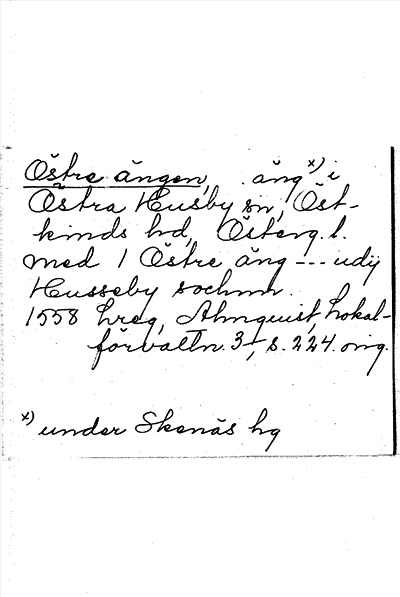 Östre ängen, äng x) i
Östra Husby sn, Öst-
kinds hd, Österg. l.
med 1 Östre äng --- udij
Husseby sochnn.
1558 hreg, Almquist, Lokal-
förvaltn. 3, s. 224. orig.
x) under Skenäs hg